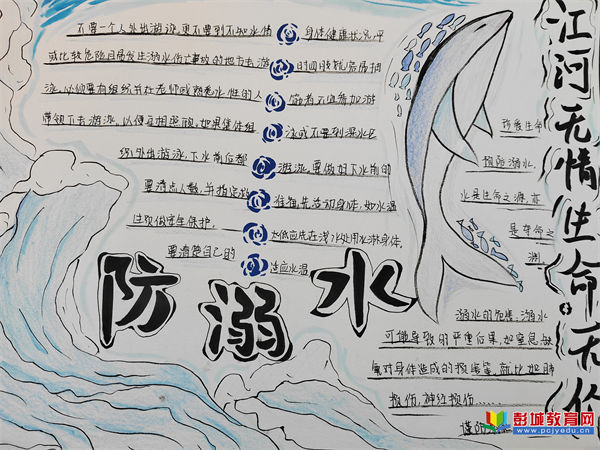 不要一个人外出游泳,更不要到不知水情
或比较危险且易发生溺水伤亡事故的地方去游
泳,必须要有组织并在老师或熟悉水性的人
带领下去游泳,以便互相照顾,如果集体组
织外出游泳,下水前后都
要清点人数,并指定救
生员做安全保护。
要清楚自己的
身体健康状况,平
时四肢就容易抽
筋者不宜参加游
泳或不要到深水区
游泳,要做好下水前的
准备,先活动身体,如水温
太低应先在浅水处用水淋身体,
适应水温
防溺水
江河无情生命无价
珍爱生命
预防溺水,
水是生命之源,亦
是夺命之
渊
溺水的危害:溺水
可能导致的严重后果,如窒息,缺
氧对身体造成的损害等,就比如肺
损伤,神经损伤……
彭城教育网
www.pcjyedu.cn